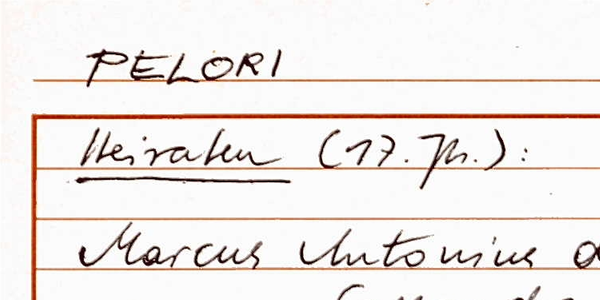 PELORI
Heiraten (17. Jh.):
Marcus Antonius